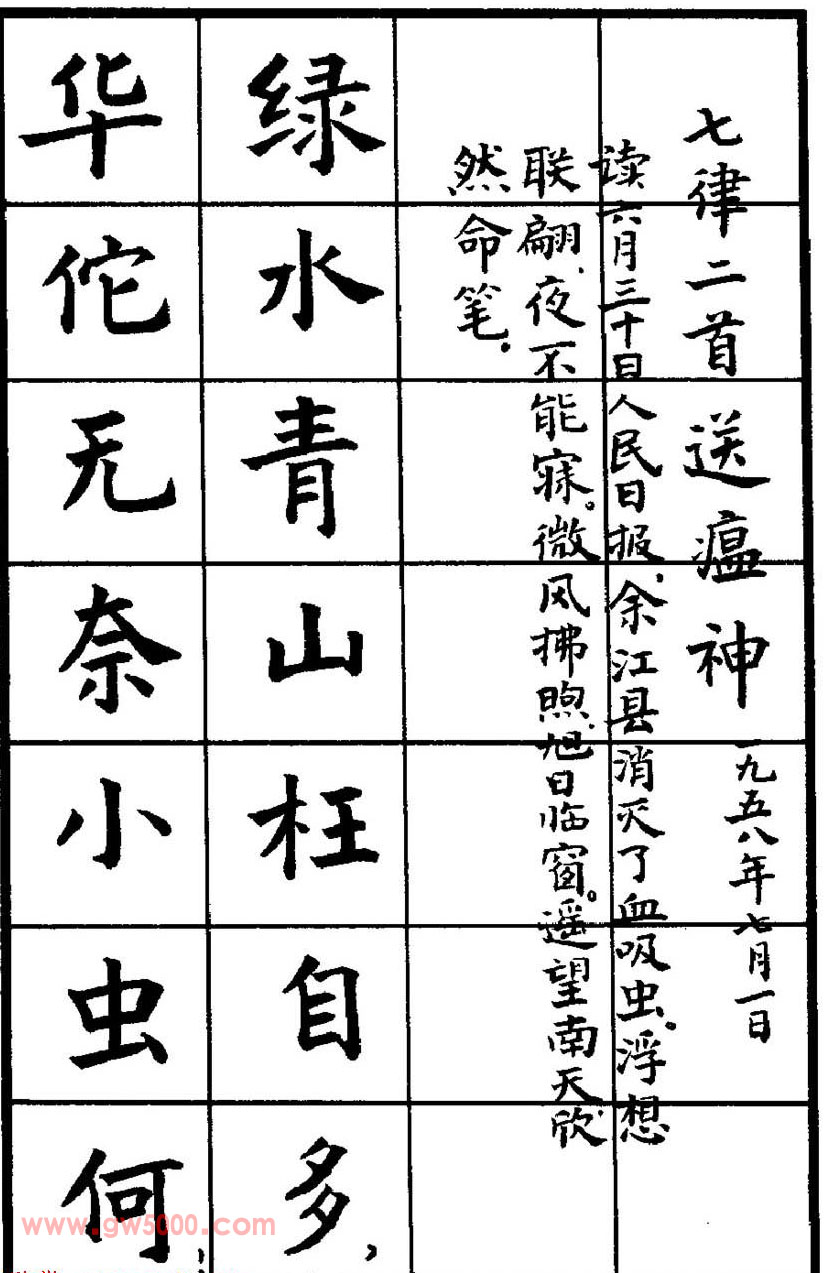 七律二首 送瘟神 一九五八年七月一日
读六月三十日人民日报,余江县消灭了血吸虫。浮想
联翩,夜不能寐。微风拂煦,旭日临窗。遥望南天,欣
然命笔。
绿水青山枉自多,
华佗无奈小虫何,
www.gw5000.com